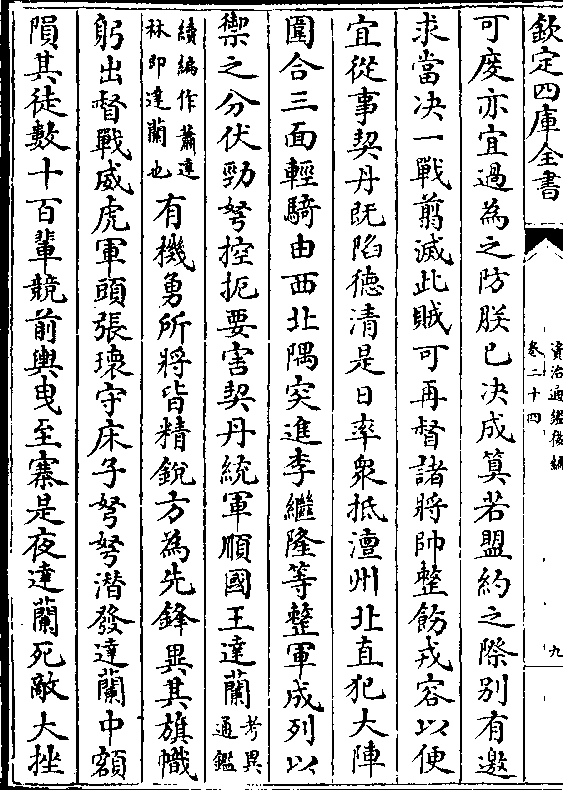 欽定四庫全書
資治通鑑後編
卷二十四
九
可度亦宜過為之防朕已決成筭若盟約之際別有邀
求當決一戰翦滅此賊可再督諸將帥整飭戎容以便
宜從事契丹既陷德清是日率衆抵澶州北直犯大陣
圍合三面輕騎由西北隅突進李繼隆等整軍成列以
禦之分伏勁弩控扼要害契丹統軍順國王達蘭考異通鑑
續編作蕭達林即達蘭也有機勇所將皆精銳方為先鋒異其旗幟
躬出督戰威虎軍頭張瓌守床子弩弩潛發達蘭中額
隕其徒數十百輩競前輿曳至寨是夜達蘭死敵大挫